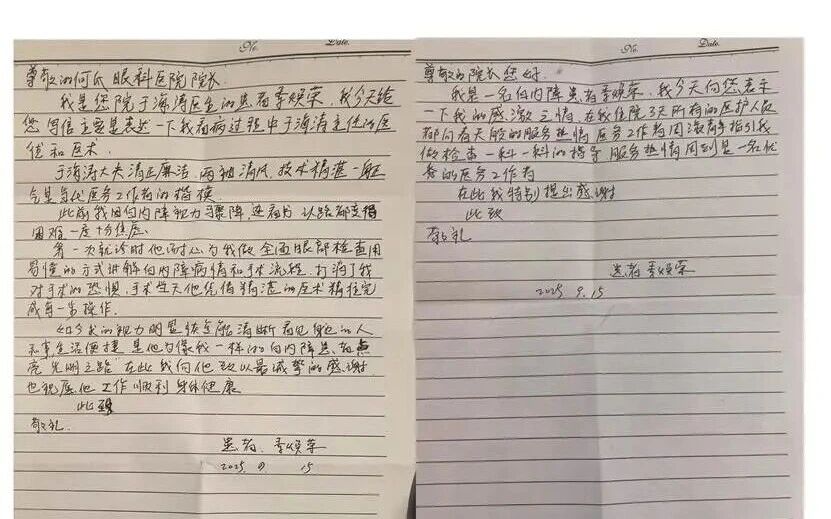 No.
Date.
尊敬的何氏眼科医院院长
我是您院于海涛医生的患者季焕荣,我今天给
您写信主要是表述一下我看病过程中于海涛主任的医
德和医术
于海涛大夫清正廉洁 两袖清风,技术精湛一
是当代医务工作者的楷模
此前我因白内障视力骤降,连看书 认路都变得
困难一度十分焦虑
第一次就诊时他耐心为我做全面眼部检查用
易懂的方式讲解白内障病情和手术流程,打消了我
对手术的恐惧,手术当天他凭借精湛的医术精准完
成每一步操作.
如今我的视力明显恢复能清晰看见身边的人
和事生活便捷 是他为像我一样的白内障患者点
亮光明之路"在此我向他致以最诚挚的感谢
也祝愿他工作顺利 身体健康
此致
敬礼.
患者.季焕荣
2025 9 15
No.
Date.
尊敬的院长您好.
我是一名白内障患者季焕荣,我今天向您表示
一下我的感激之情,在我住院3天所有的医护人员
都问春天般的服务热情 医务工作者周 指引我
做检查 一科一科的 服务热情周到是一名优
秀的医务工作者
在此我特别提出感谢
此致
敬礼
患者 季焕荣
2025 9.15